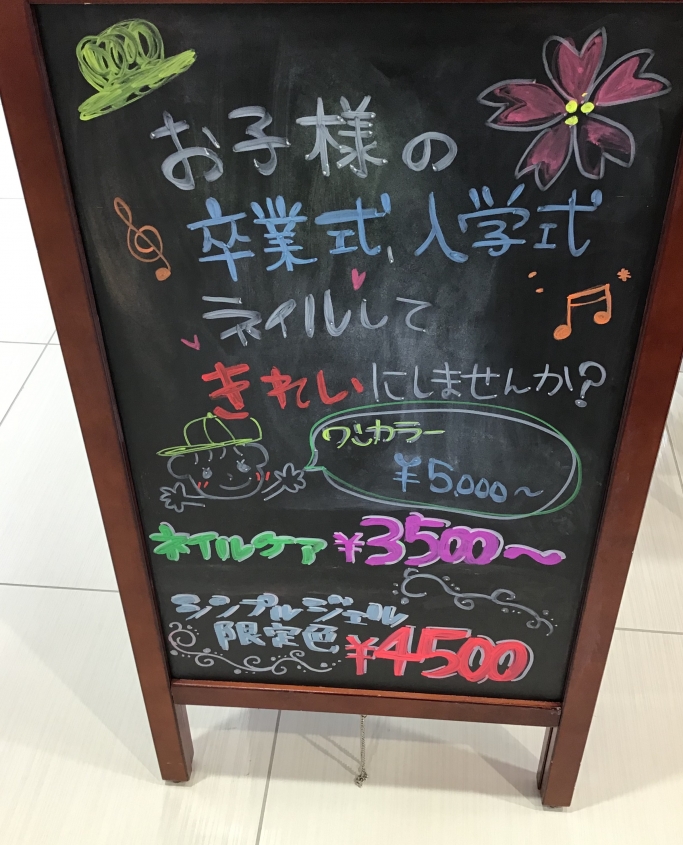 お子様の
卒業式、入学式
ネイルして
きれいにしませんか?
ワンカラー
¥5,000～
ネイルケア ¥3500～
シンプルジェル
限定色 ¥4500